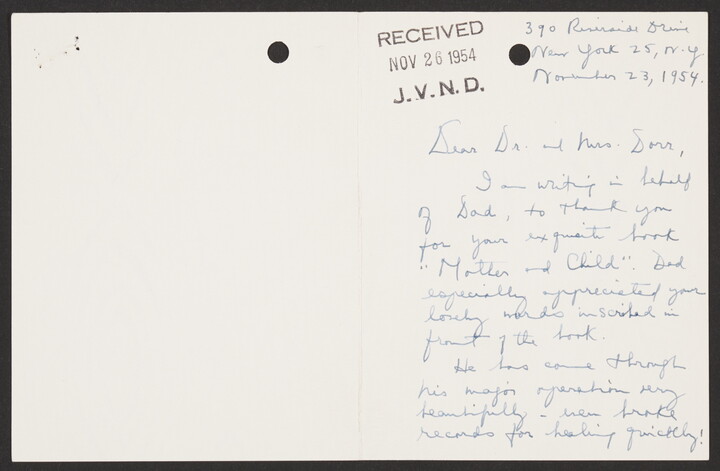 RECEIVED
NOV 26 1954
J.V.N.D.
390 Riverside Drive
New York 25, N.Y.
November 23, 1954.
Dear Dr. and Mrs. Dorr,
I am writing in behalf
of Dad, to thank you
for your exquisite book
"Mother and Child". Dad
especially appreciated your
lovely words inscribed in
front of the book.
He has come through
his major operation very
beautifully - even broke
records for healing quickly!